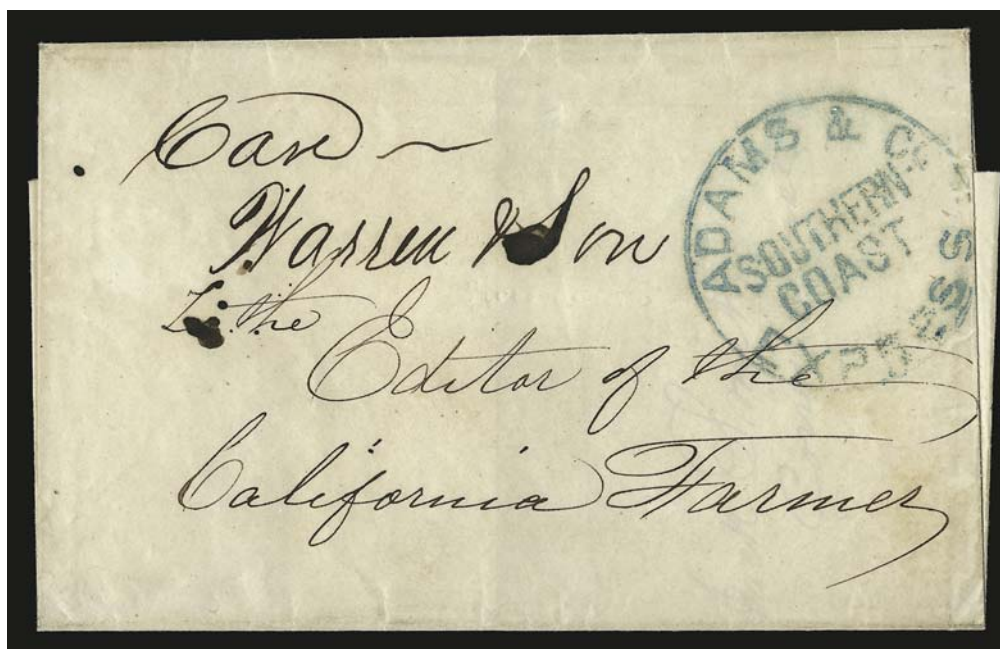 Care ~
Warren & Son
To the
Editor of the
California Farmer
ADAMS & Co. EXPRESS
SOUTHERN
COAST